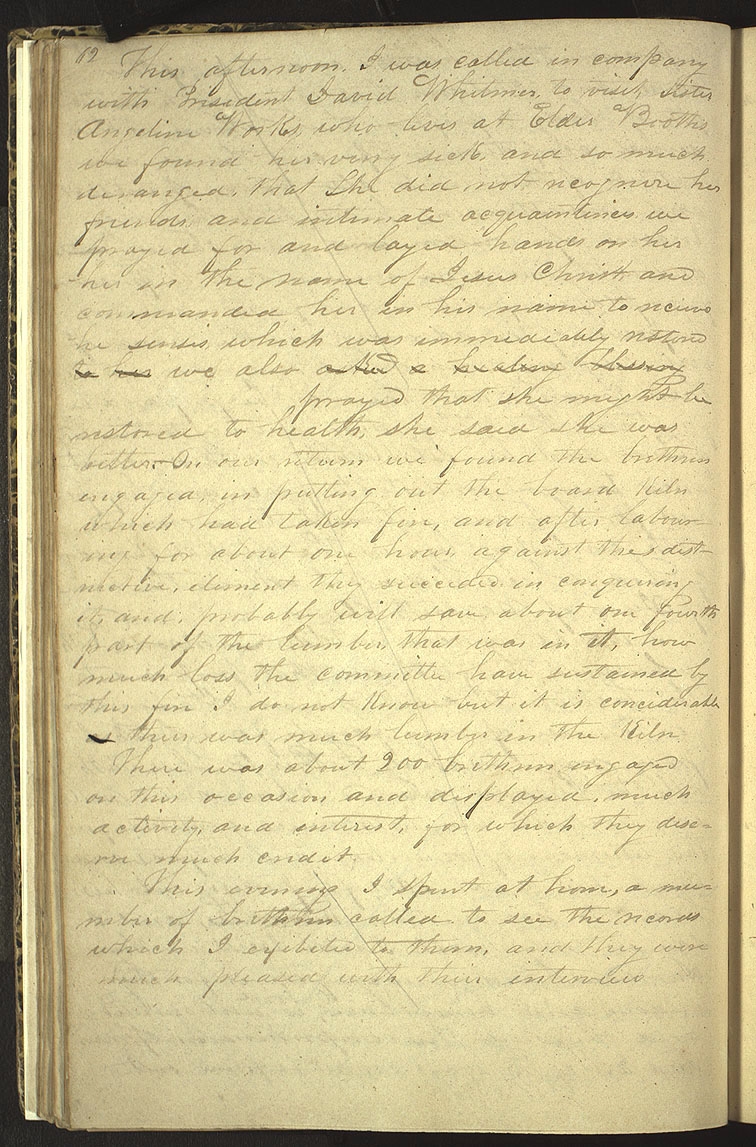 62
This afternoon. I was called in company
with President David Whitmer, to visit sister
Angeline Works, who lives at Elder Booths
we found her very sick, and so much
deranged, that She did not recognize her
friends, and intimate acquaintences we
prayed for and layed hands on her
her in the name of Jesus Christ and
commanded her in his name to receive
he senses, which was immediately restored
to her we also asked a healing blessing
prayed that she might be
restored to health, she said she was
better. On our return we found the brethren
engaged, in putting out the board kiln
which had taken fire, and after labour-
ing for about one hour, against this dist-
ructive, element they succeded in conquering
it, and, probably will save about one fourth
part of the lumber, that was in it, how
much loss the committee have sustained by
this fire I do not know but it is conciderable
as there was much lumber in the kiln
There was about 200 brethren engaged
on this occasion and displayed, much
activity, and interest, for which they dese-
rve much credit.
This evening I spent at home, a nu-
mber of brethren called to see the records
which I exibited to them, and they were
much pleased with their interview